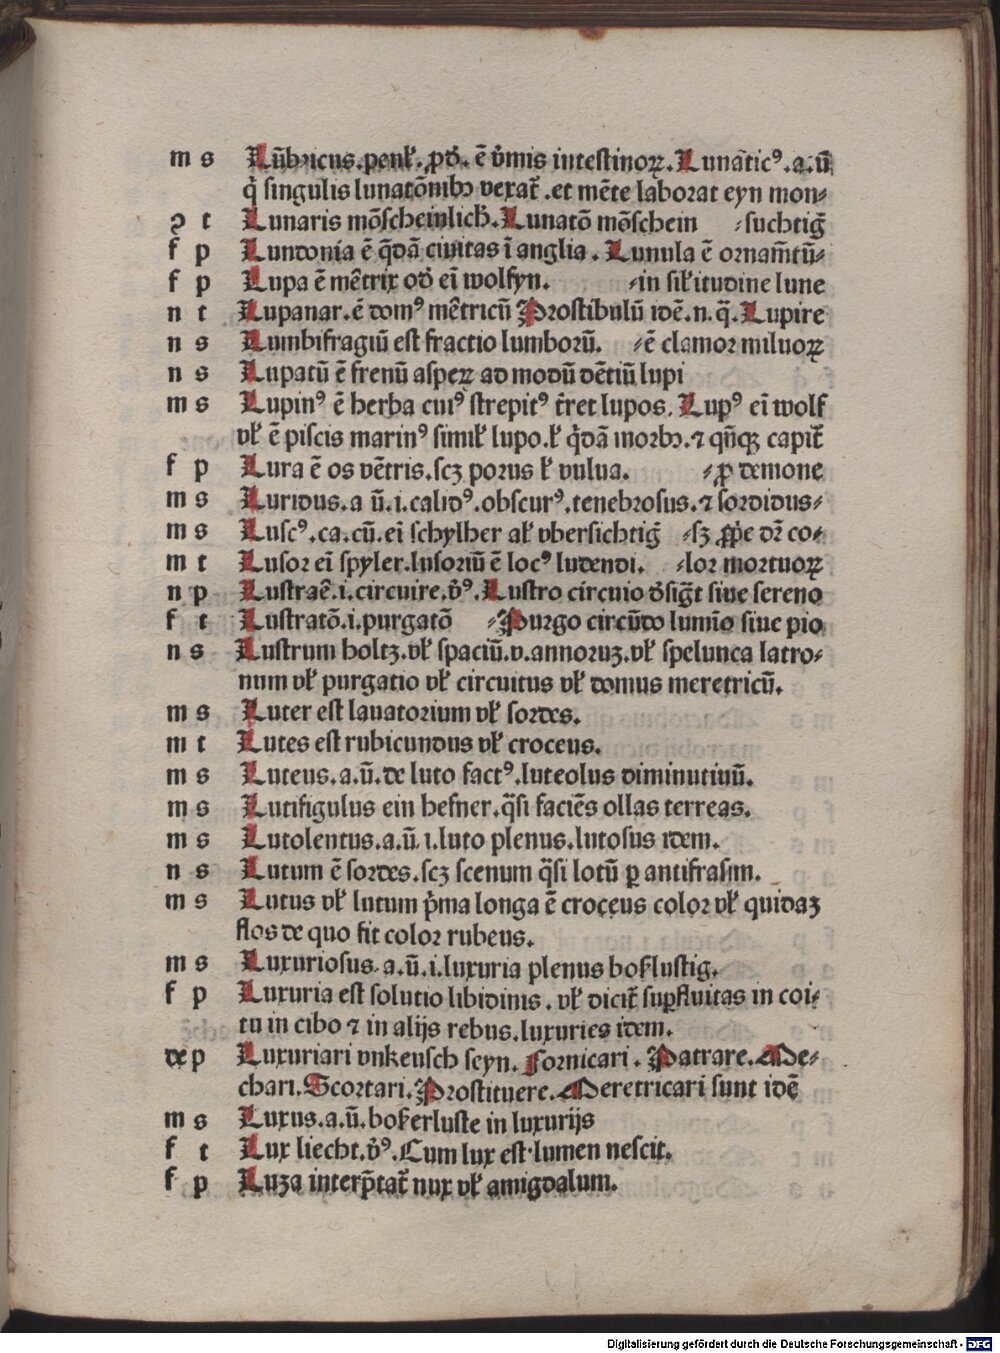 m s Lūbricus.penl̄.ꝓd̄.ē v̄mis intestinoꝝ.Lunaticꝰ.a.ū
q̇ singulis lunatōnibꝫ vexat᷑.et mēte laborat eyn mon⸗
ꝯ t Lunaris mōscheinlich̄.Lunatō mōschein ⸗suchtiḡ
f p Lundonia ē q̄dā ciuitas ī anglia. Lunula ē ornam̄tū⸗
f p Lupa ē mēt̄rix od̄ eī wolfyn. ⸗in sil̄itudine lune
n t Lupanar.ē domꝰ mēt̄ricū Prostibulū idē.n.q̄.Lupire
n s Lumbifragiū est fractio lumborū. ⸗ē clamor miluoꝝ
n s Lupatū ē frenū asperꝝ ad modū dētiū lupi
m s Lupinꝰ ē herba cuiꝰ strepitꝰ t̄ret lupos. Lupꝰ eī wolf
vl̄ ē piscis marinꝰ simil̄ lupo.l̄ q̇dā morbꝫ.⁊ qn̄qꝫ capit᷑
f p Lura ē os vētris.scꝫ porus l̄ vulua. ⸗ꝓ demone
m s Luridus.a ū.i.calidꝰ.obscurꝰ.tenebrosus.⁊ sordidus⸗
m s Luscꝰ.ca.cū.eī schylher al̄ vbersichtiḡ ⸗sꝫ ꝓp̄e dr̄ co⸗
m t Lusor eī spyler.lusoriū ē locꝰ ludendi. ⸗lor mortuoꝝ
n p Lustrae̅.i.circuire.v̄ꝰ.Lustro circuio d̄siḡt siue sereno
f t Lustratō.i.purgatō ⸗Purgo circūdo lumīo siue pio
n s Lustrum holtꝫ.vl̄ spaciū.v.annoruꝫ.vl̄ spelunca latro⸗
num vl̄ purgatio vl̄ circuitus vl̄ domus meretricū.
m s Luter est lauatorium vl̄ sordes.
m t Lutes est rubicundus vl̄ croceus.
m s Luteus.a.ū.de luto factꝰ.luteolus diminutiuū.
m s Lutifigulus ein hefner.q̄si faciēs ollas terreas.
m s Lutolentus.a.ū.i.luto plenus.lutosus idem.
n s Lutum ē sordes.scꝫ scenum q̄si lotū ꝑ antifrasim.
m s Lutus vl̄ lutum p̄ma longa ē croceus color vl̄ quidaꝫ
flos de quo fit color rubeus.
m s Luxuriosus.a.ū.i.luxuria plenus boßlustig.
f p Luxuria est solutio libidinis. vl̄ dicit᷑ suꝑfluitas in coi⸗
tu in cibo ⁊ in alijs rebus.luxuries idem.
de p Luxuriari vnkeusch seyn. Fornicari. Patrare. Me⸗
chari.Scortari.Prostituere.Meretricari sunt idē
m s Luxus.a.ū.boßerluste in luxurijs
f t Lux liecht.v̄ꝰ.Cum lux est.lumen nescit.
f p Luza interp̄tat᷑ nux vl̄ amigdalum.
Digitalisierung gefördert durch die Deutsche Forschungsgemeinschaft - DFG